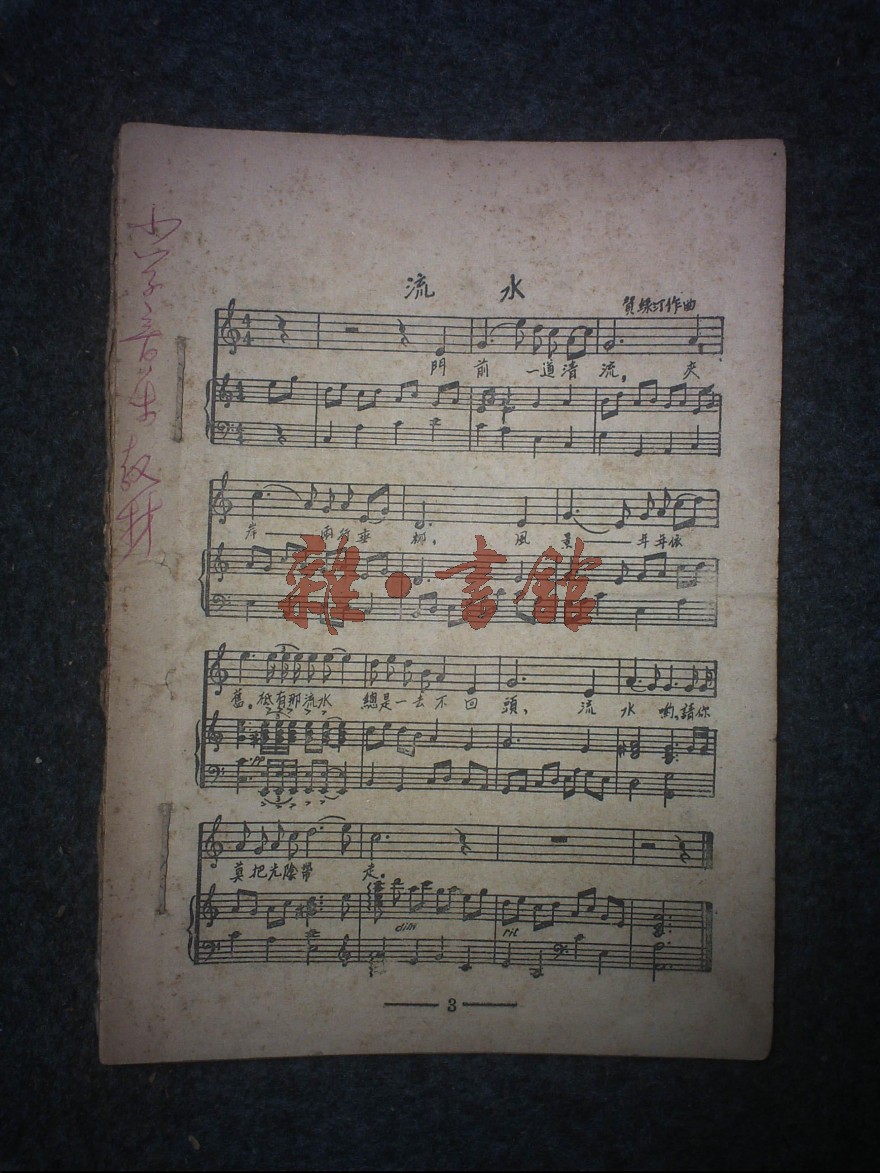 流 水
賀綠汀作曲
門前 一道清流, 夾
岸 兩行垂柳, 風景 井井依
舊。祗有那流水 總是一去不回頭, 流水喲,請你
莫把光陰帶走。
pp
dim
rit
3
小学音乐教材
雜·書館